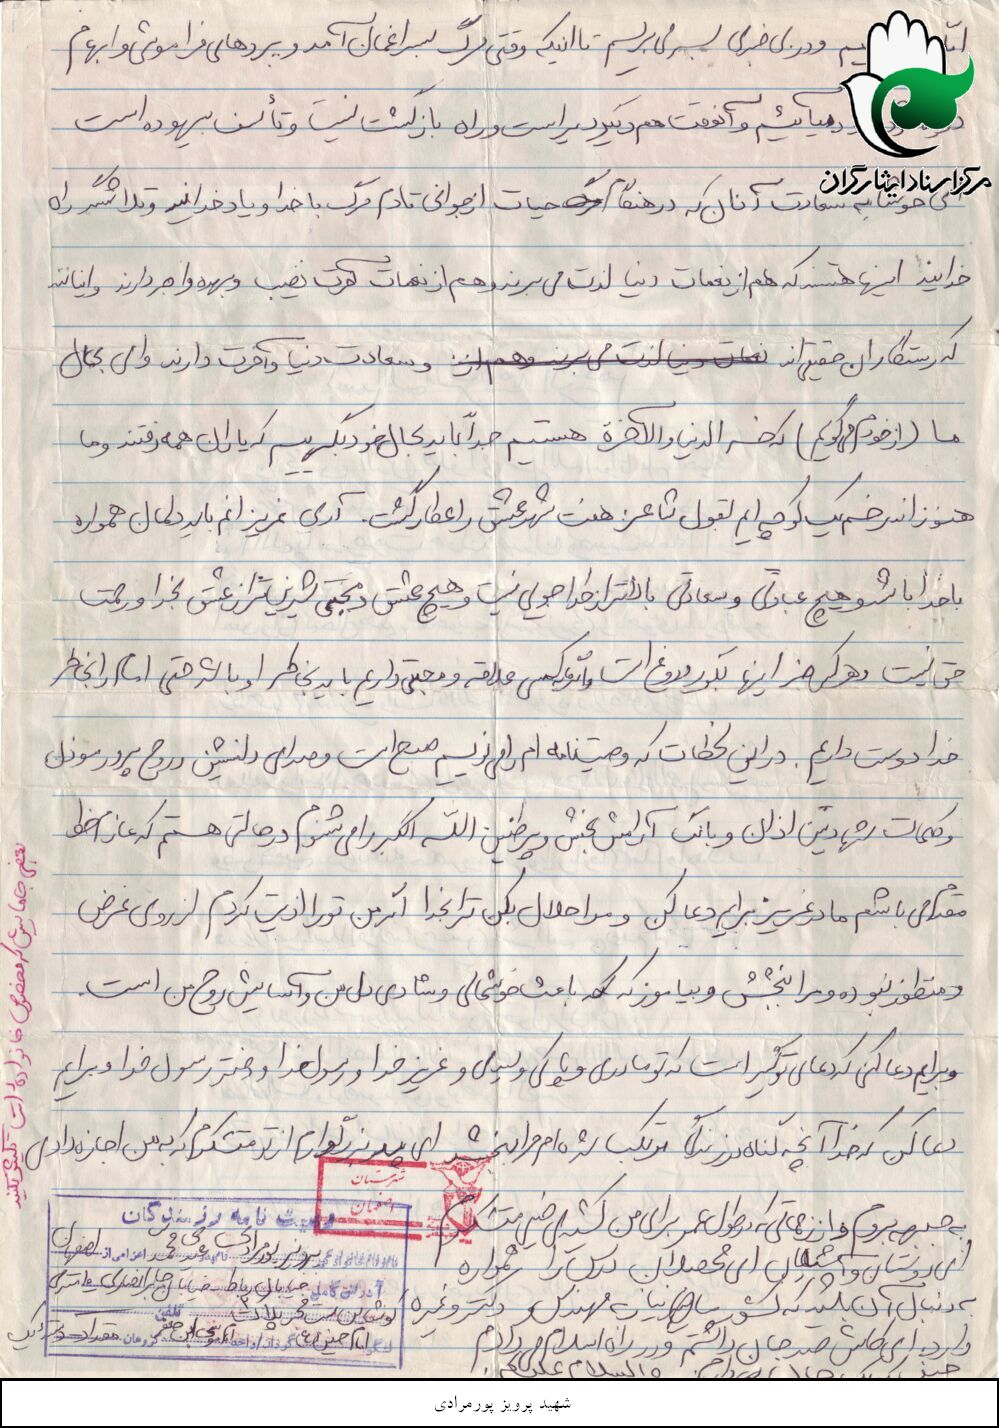 و در بی خبری بسر می بریم تا اینکه وقتی مرگ بسراغمان آمد و پرده های فراموشی و ابهام
و آنوقت هم دیگر دیر است و راه بازگشت نیست و تأسف بیهوده است
مرکز اسناد ایثارگران
خوشا به سعادت آنان که در هنگام حیات از جوانی تا دم مرگ با خدا و یاد خدایند و تلاشگر راه
خدایند اینها هستند که هم از نعمات دنیا لذت می برند و هم از نعمات آخرت نصیب و بهره و اجر دارند و اینانند
که رستگاران حقیقی اند و سعادت دنیا و آخرت دارند وای بحال
ما (از خودم می گویم) که خسر الدنیا و الآخرة هستیم جداً باید بحال خود بگرییم که یاران همه رفتند و ما
هنوز اندر خم یک کوچه ایم بقول شاعر هفت شهر عشق را عطار گشت. آری عزیزانم باید دلمان همواره
با خدا باشد و هیچ عبادتی و سعادتی بالاتر از خداجویی نیست و هیچ عشق و محبتی شیرین تر از عشق بخدا و رحمت
حق نیست و هر کس جز اینها بگوید دروغ است و اگر به کسی علاقه و محبتی داریم باید بخاطر او باشد حتی امام را بخاطر
خدا دوست داریم. در این لحظات که وصیتنامه ام را می نویسم صبح است و صدای دلنشین و روح پرور موذن
و کلمات شهادتین اذان و بانگ آرامش بخش و پر طنین الله اکبر را می شنوم در حالتی هستم که عازم خط
مقدم می باشم مادر عزیز برایم دعا کن و مرا حلال بکن ترا بخدا اگر من تو را اذیت کردم از روی غرض
و منظور نبوده و مرا ببخش و بیاموز که باعث خوشحالی و شادی دل من و آسایش روح من است.
و برایم دعا کن که دعای تو گیراست که تو مادری و پاکی و عزیز خدا و رسول خدا و دختر رسول خدا و برایم
دعا کن که خدا آنچه گناه در زندگی مرتکب شده ام مرا ببخشد ای پدر بزرگوارم از تو متشکرم که به من اجازه دادی
به جبهه بروم و از زحماتی که در طول عمر برای من کشیدی خیلی متشکرم
ای دوستان و آشنایان ای محصلان درس را همواره
به دنبال آن باشید که کشور ما نیاز به مهندس و دکتر و غیره
دارد. ای کاش صد جان داشتم و در راه اسلام می دادم
والسلام علیکم.
شهرستان
اصفهان
وصیت نامه رزمندگان
پرویز پورمرادی
شهید پرویز پورمرادی